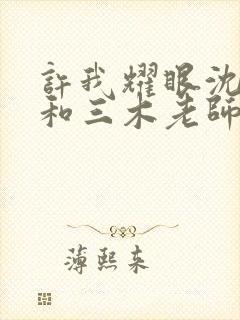 許我耀眼沈
和三木老師
薄熙来